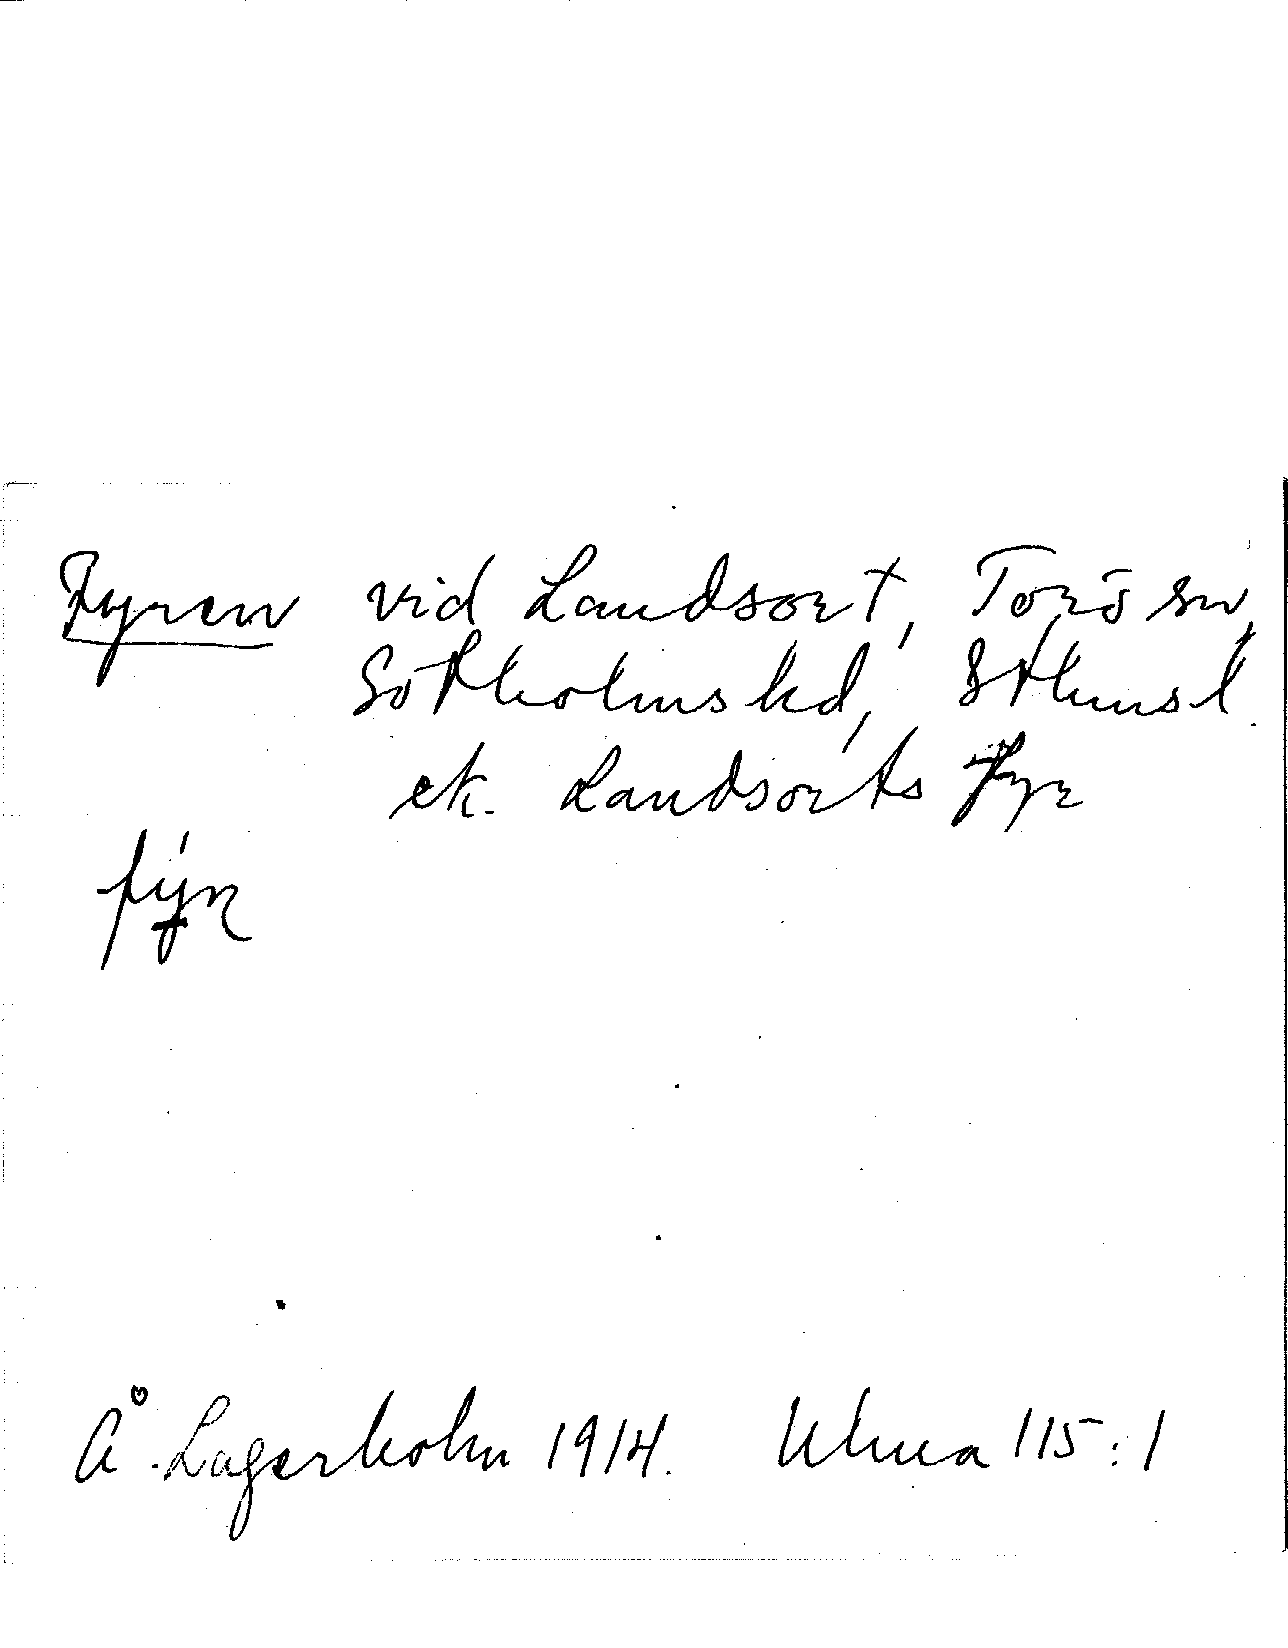 Fyren vid Landsort, Torö sn,
Sotholms hd, Sthmsl.
ek. Landsorts Fyr
fýn
Å. Lagerholm 1914. Ulma 115:1